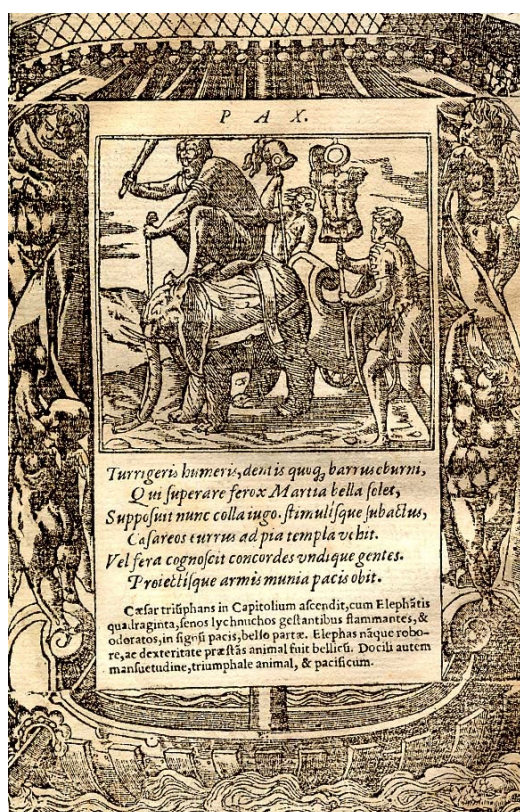 P A X.
Turrigeris humeris, dentis quoq; barrus eburni,
Qui superare ferox Martia bella solet,
Supposuit nunc colla iugo. stimulisque subactus,
Cæsareos currus ad pia templa vehit.
Vel fera cognoscit concordes vndique gentes.
Proiectisque armis munia pacis obit.
Cæsar triũphans in Capitolium ascendit, cum Elephãtis
quadraginta, senos lychnuchos gestantibus flammantes, &
odoratos, in signũ pacis, bello partæ. Elephas nãque robo-
re, ac dexteritate præstãs animal fuit bellicũ. Docili autem
mansuetudine, triumphale animal, & pacificum.